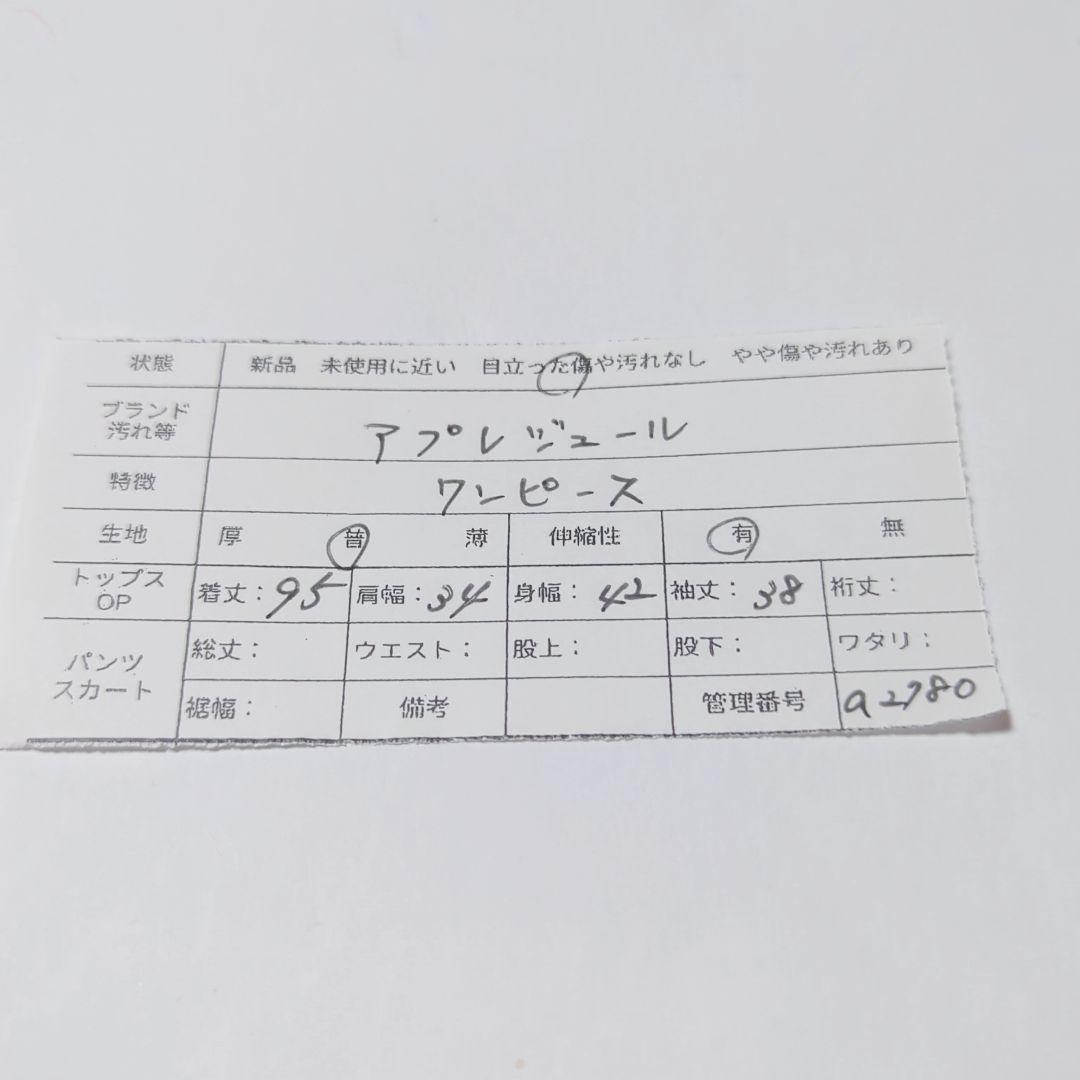 状態 新品 未使用に近い 目立った傷や汚れなし やや傷や汚れあり
ブランド
汚れ等 アプレジュール
特徴 ワンピース
生地 厚 普 薄 伸縮性 有 無
トップス
OP 着丈：95 肩幅：34 身幅：42 袖丈：38 裄丈：
パンツ
スカート 総丈： ウエスト： 股上： 股下： ワタリ：
裾幅： 備考 管理番号 a2780